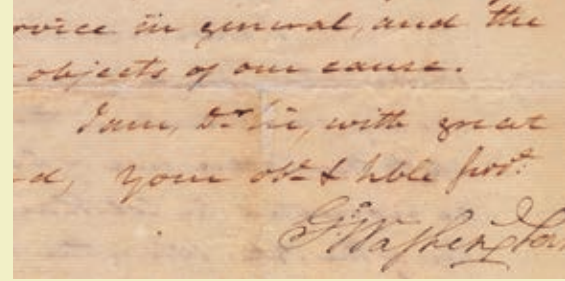 rvice in general, and the
objects of our cause.
I am, Dr Sir, with great
d, your obt & hble servt.
Go Washington